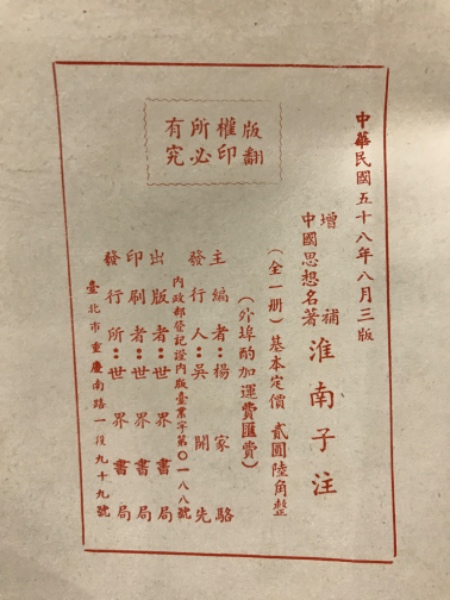 中華民國五十八年八月三版
增補
中國思想名著
淮南子注
（全一册）基本定價 貳圓陸角整
（外埠酌加運費匯費）
版權所有
翻印必究
主編者：楊家駱
發行人：吳開先
內政部登記證內版臺業字第〇一八八號
出版者：世界書局
印刷者：世界書局
發行所：世界書局
臺北市重慶南路一段九十九號